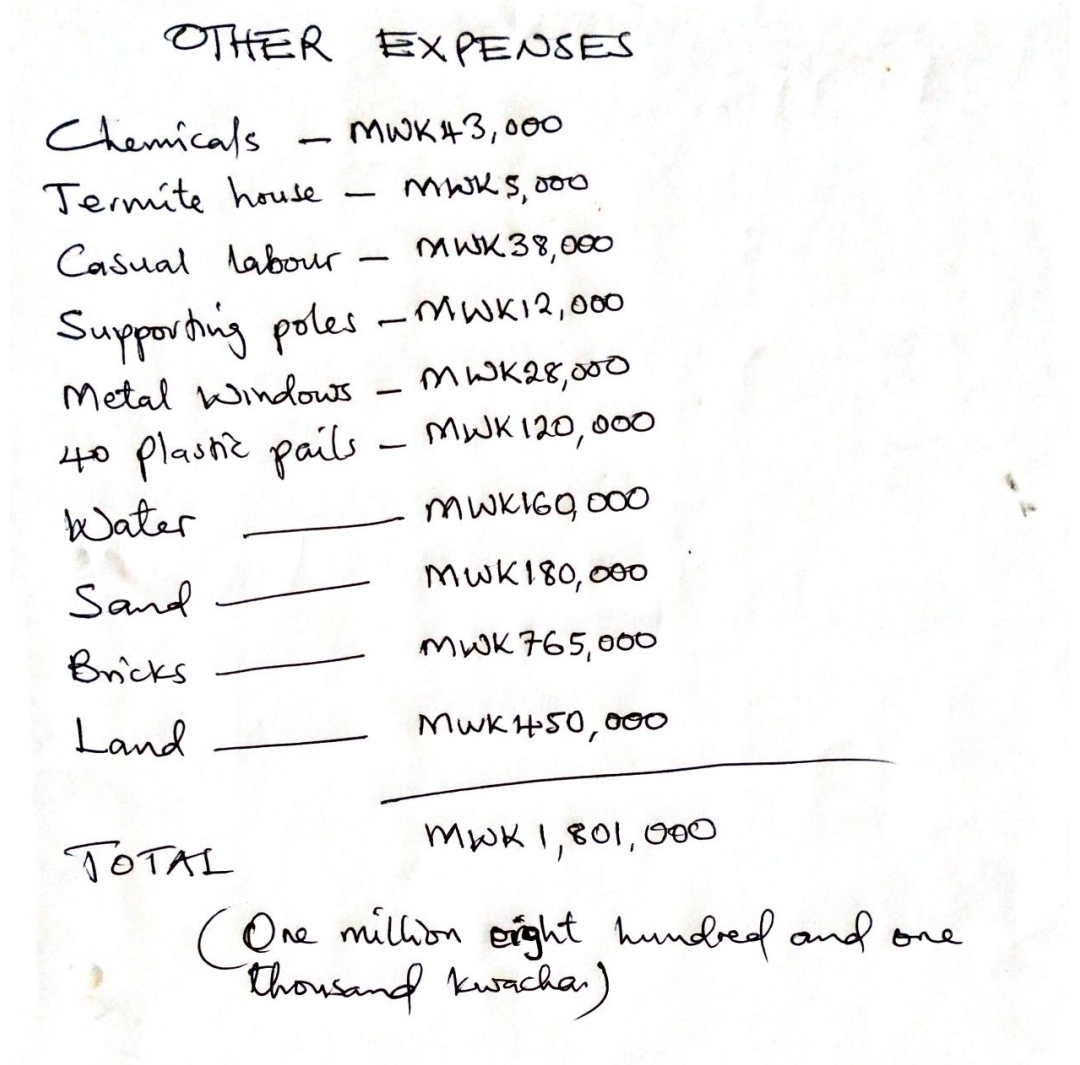 OTHER EXPENSES
Chemicals – MWK43,000
Termite house – MWK5,000
Casual labour – MWK38,000
Supporting poles – MWK12,000
Metal Windows – MWK28,000
40 plastic pails – MWK120,000
Water — MWK160,000
Sand — MWK180,000
Bricks — MWK765,000
Land — MWK450,000
TOTAL MWK1,801,000
(One million eight hundred and one
thousand kwacha)